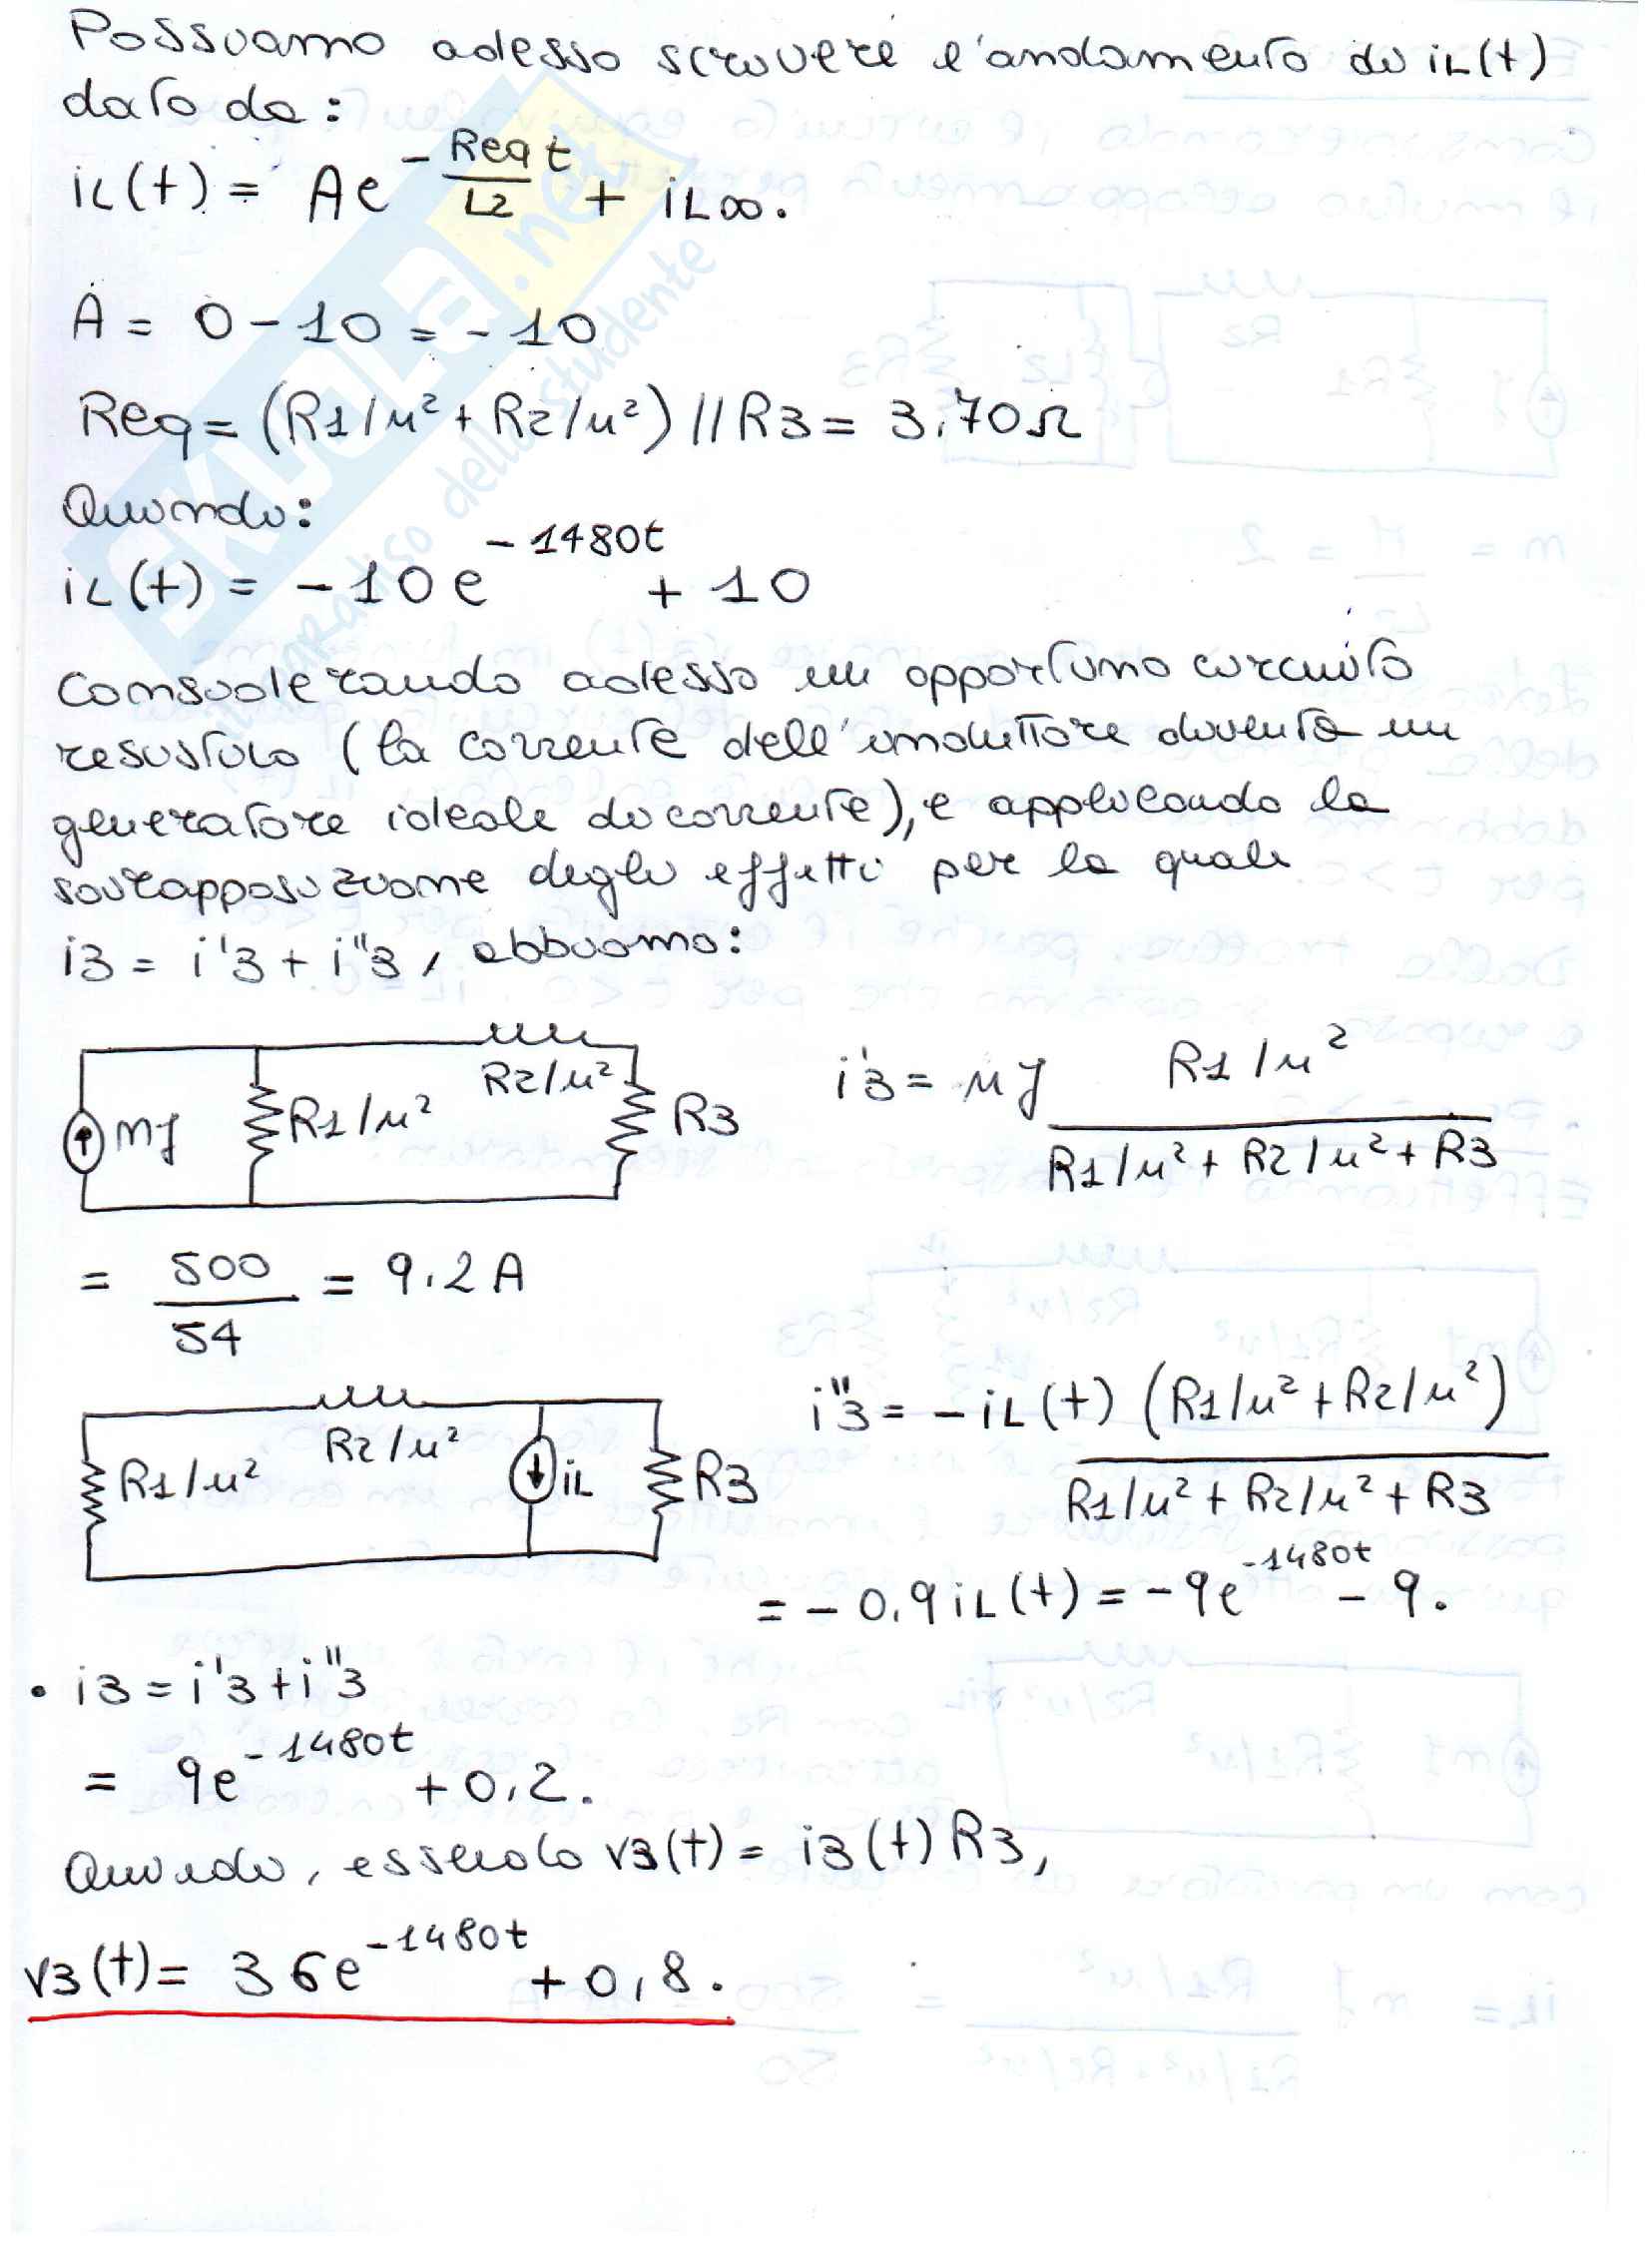 Possiamo adesso scrivere l'andamento di iL(t)
dato da:
iL(t) = Ae^(-Req/L2 t) + iL∞.
A = 0-10 = -10
Req = (R1/n² + R2/n²) // R3 = 3.70Ω
Quindi:
iL(t) = -10e^(-1480t) + 10
Considerando adesso un opportuno circuito
resistivo (la corrente dell'induttore diventa un
generatore ideale di corrente), e applicando la
sovrapposizione degli effetti per la quale
i3 = i'3 + i''3, abbiamo:
nJ R1/n² R2/n² R3
i'3 = nJ (R1/n²) / (R1/n² + R2/n² + R3)
= 500/54 = 9.2A
R1/n² R2/n² iL R3
i''3 = -iL(t) (R1/n² + R2/n²) / (R1/n² + R2/n² + R3)
= -0.9iL(t) = -9e^(-1480t) - 9.
• i3 = i'3 + i''3
= 9e^(-1480t) + 0,2.
Quindi, essendo v3(t) = i3(t) R3,
v3(t) = 36e^(-1480t) + 0,8.
SKUOLA.net
il paradiso dello studente